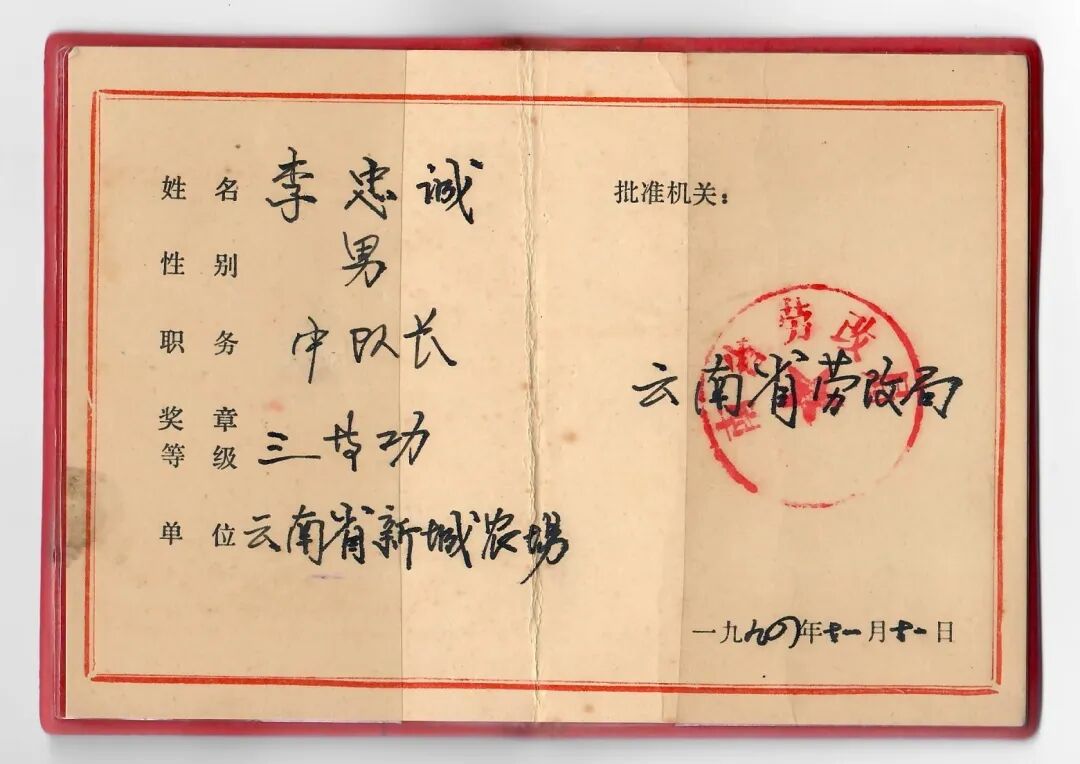 姓名 李忠诚
性别 男
职务 中队长
奖章等级 三等功
单位 云南省新城农场
批准机关：
云南省劳改局
一九九四年十一月十一日